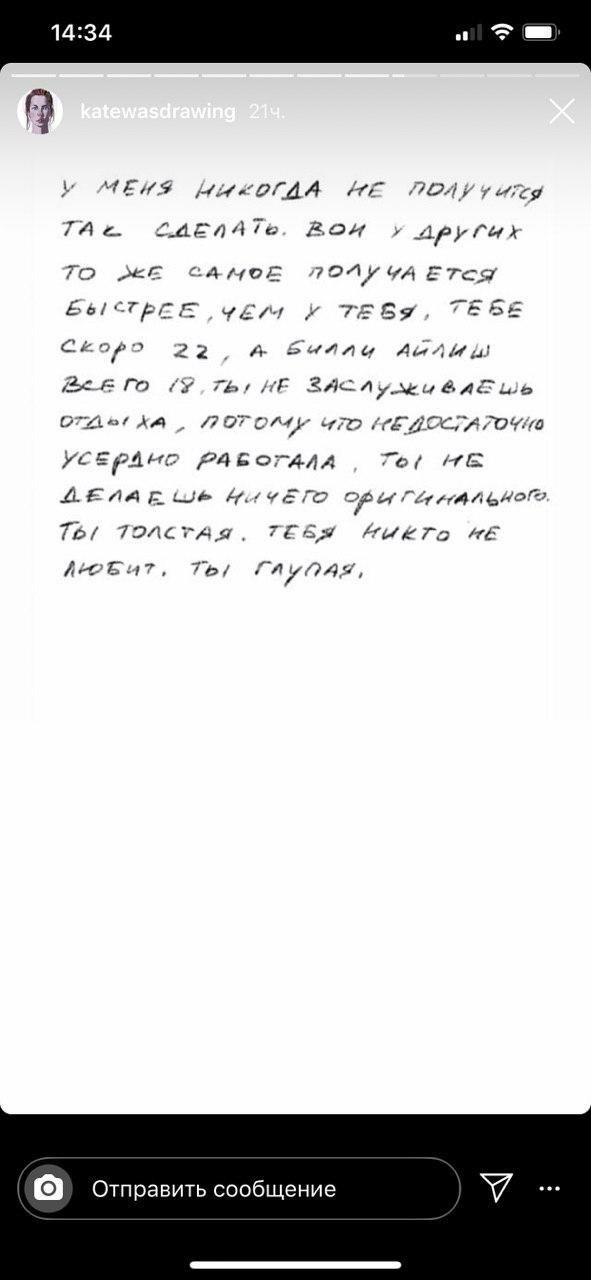 14:34
katewasdrawing 21ч.
У МЕНЯ НИКОГДА НЕ ПОЛУЧИТСЯ
ТАК СДЕЛАТЬ. ВОН У ДРУГИХ
ТО ЖЕ САМОЕ ПОЛУЧАЕТСЯ
БЫСТРЕЕ, ЧЕМ У ТЕБЯ, ТЕБЕ
СКОРО 22, А БИЛЛИ АЙЛИШ
ВСЕГО 18, ТЫ НЕ ЗАСЛУЖИВАЕШЬ
ОТДЫХА, ПОТОМУ ЧТО НЕДОСТАТОЧНО
УСЕРДНО РАБОТАЛА, ТЫ НЕ
ДЕЛАЕШЬ НИЧЕГО ОРИГИНАЛЬНОГО.
ТЫ ТОЛСТАЯ. ТЕБЯ НИКТО НЕ
ЛЮБИТ. ТЫ ГЛУПАЯ.
Отправить сообщение